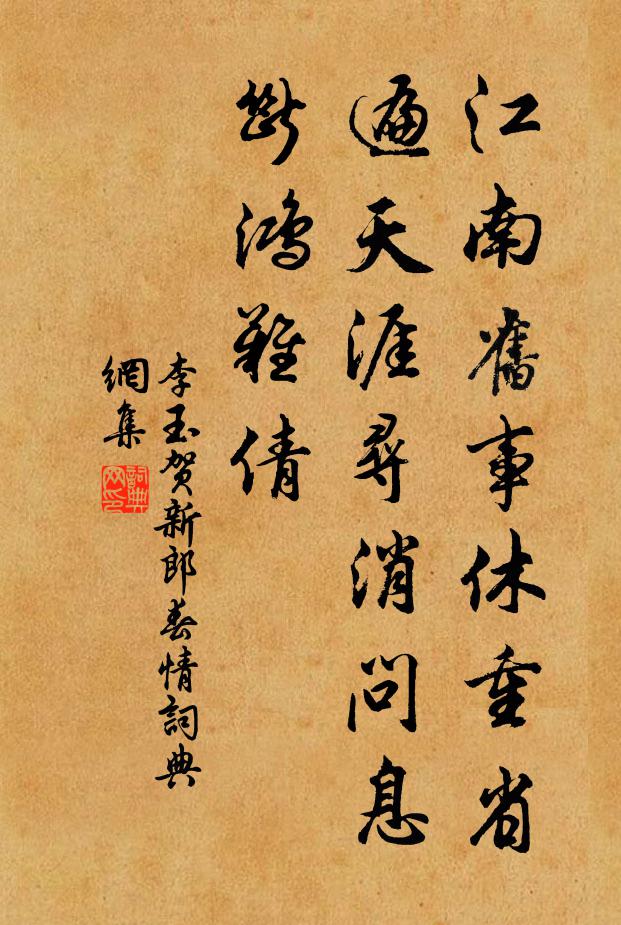 江南舊事休重省
遍天涯尋消問息
斷鴻難倩
李玉賀新郎春情詞典
網集
詞典
网印